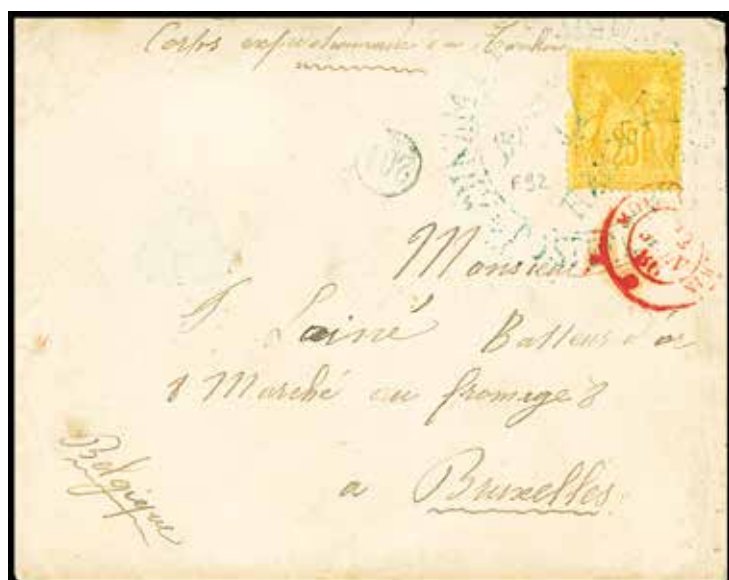 Corps expéditionnaire du Tonkin
25
Monsieur
Lainé Batteur d'or
8 Marché au fromage 8
a Bruxelles
Belgique